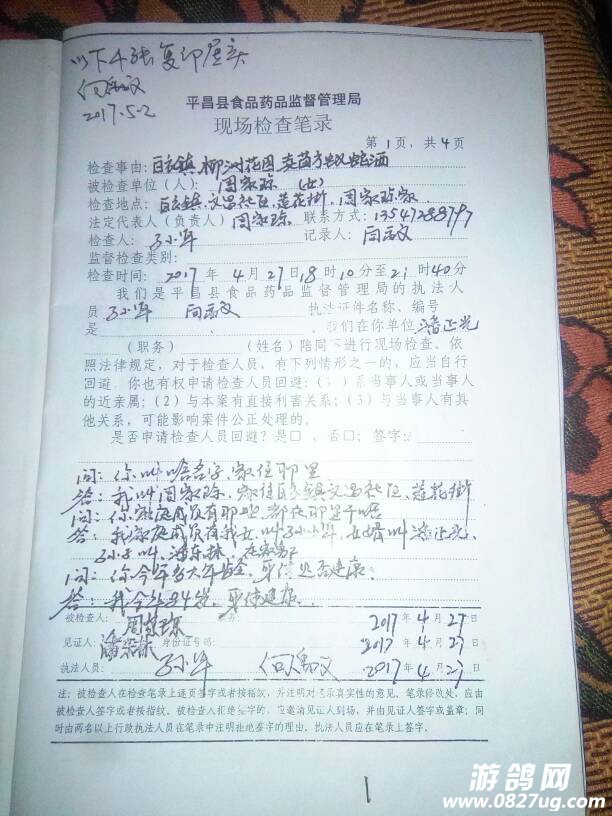 以下4张复印属实
何禹汉
2017.5.2
平昌县食品药品监督管理局
现场检查笔录
第1页，共4页
检查事由：白衣镇柳洲花园卖药酒
被检查单位（人）：周家琼（女）
检查地点：白衣镇文昌社区莲花街，周家琼家
法定代表人（负责人）周家琼 联系方式：13547288797
检查人： 记录人：
监督检查类别：
检查时间：2017年4月27日18时10分至21时40分
我们是平昌县食品药品监督管理局的执法人
员 执法证件名称、编号
是 、 。我们在你单位潘正光
（职务） （姓名）陪同下进行现场检查。依
照法律规定，对于检查人员，有下列情形之一的，应当自行
回避。你也有权申请检查人员回避：（1）系当事人或当事人
的近亲属；（2）与本案有直接利害关系；（3）与当事人有其
他关系，可能影响案件公正处理的。
是否申请检查人员回避？是□，否□；签字：
问：你叫啥名字，家住那里
答：我叫周家琼，家住白衣镇文昌社区，莲花街
问：你家庭成员有那些，都在那里干啥
答：我家庭成员有我女，叫 ，女婿叫潘正光，
孙子叫潘东林，在家
问：你今年多大年龄，身体是否健康
答：我今年84岁，身体健康。
被检查人：周家琼 2017年4月27日
见证人：潘东林 身份证号码： 2017年4月27日
执法人员： 2017年4月27日
注：被检查人在检查笔录上逐页签字或者按指纹，并注明对笔录真实性的意见。笔录修改处，应由
被检查人签字或者按指纹。被检查人拒绝签字的，应邀请见证人到场，并由见证人签字或盖章；同
时由两名以上行政执法人员在笔录中注明拒绝签字的理由。执法人员应在笔录上签字。
1
游鸽网
www.0827ug.com